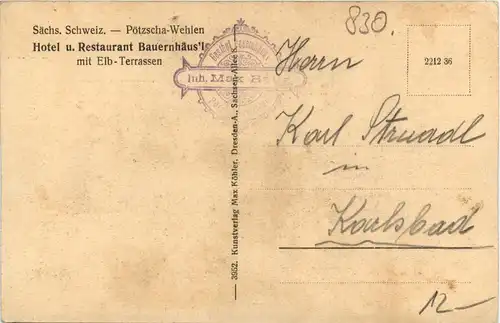 Sächs. Schweiz. — Pötzscha-Wehlen
Hotel u. Restaurant Bauernhäus'l
mit Elb-Terrassen
Inh. Max
830.
2212 36
Herrn
Karl
in
Karlsbad
12-
3952. Kunstverlag Max Köhler, Dresden-A., Sachsen-Allee 8.